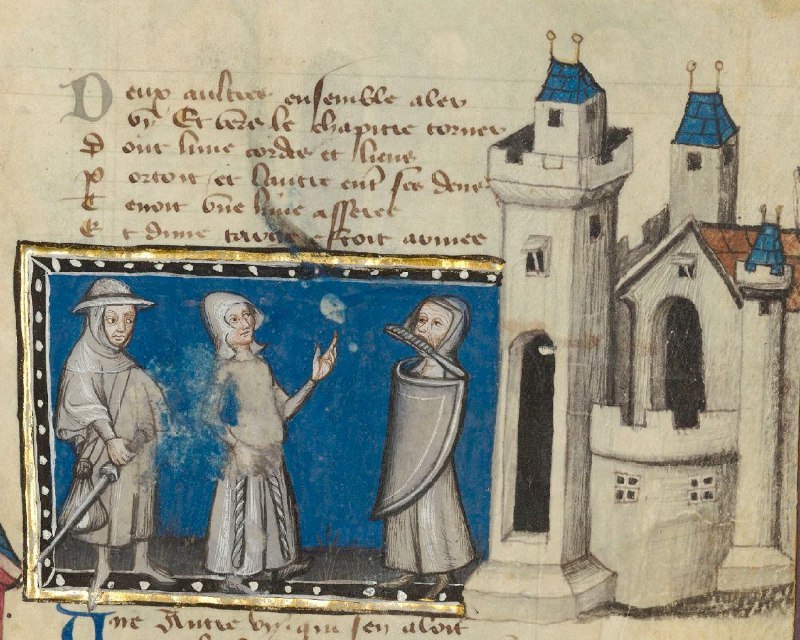 Deux aultres ensemble aler
vy Et vers le chapitre torner
Dont lune cordes et liens
Portoit et lautre ent ses dens
Tenoit vne lime asseree
Et dune targe estoit armee
Vne Autre vy qui sen aloit